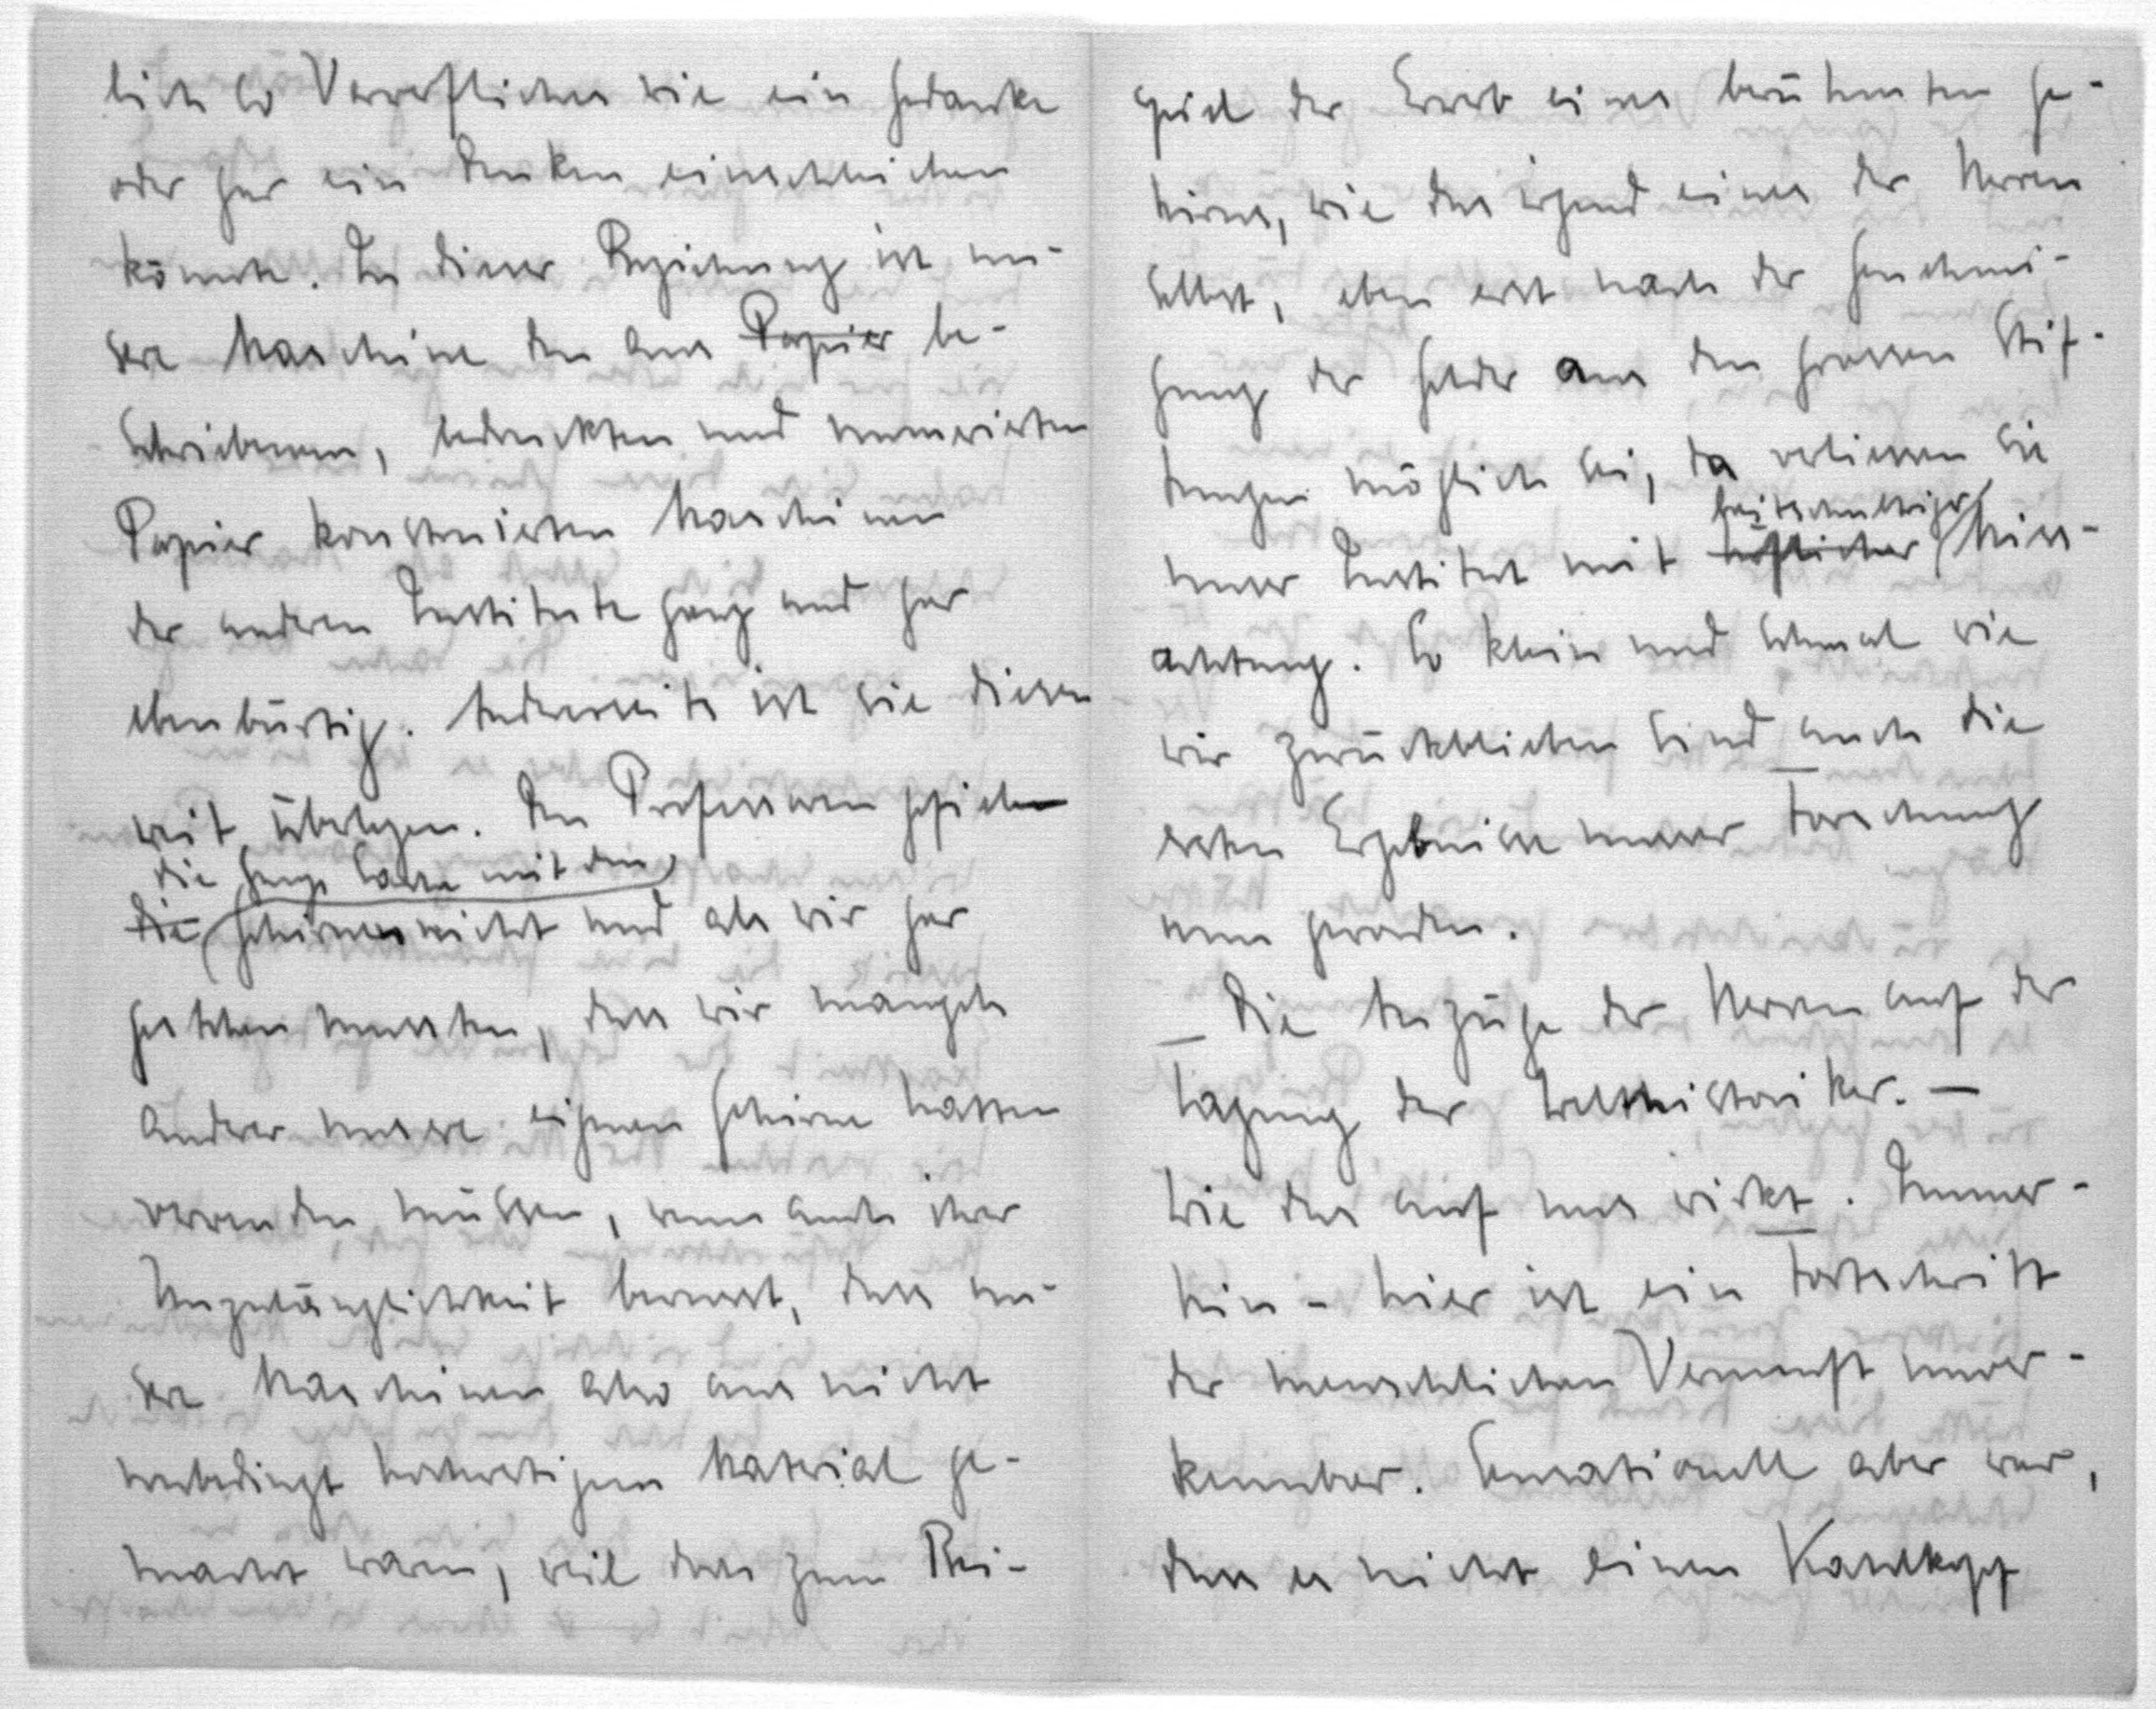 lich so Verwerfliches wie ein Gedanke
oder gar ein Denken einschleichen
könnte. In dieser Beziehung ist un-
sre Maschine den aus Papier be-
schriebenem, bedruckten und numerierten
Papier konstruierten Maschinen
der anderen Institute ganz und gar
ebenbürtig. Andererseits ist sie diesen
weit überlegen. Den Professoren gefielen
die ganze Sache mit den
die Gehirnen nicht und als wir gar
gestehen mussten, dass wir mangels
anderer unsere eigenen Gehirne hatten
verwenden müssen, wenn auch ihrer
Unzulänglichkeit bewusst, dass un-
sre Maschinen also aus nicht
unbedingt hochwertigem Material ge-
macht waren, weil das zum Bei-
spiel der Erwerb eines berühmten Ge-
hirns, wie das irgend eines der Herren
selbst, eben erst nach der Genehmi-
gung der Gelder aus den grossen Stif-
tungen möglich sei, da verliessen sie
unser Institut mit höflicher Miss-
achtung. So klein und schmal wie
wir zurückblieben sind auch die
ersten Ergebnisse unserer Forschung
nun geraden.
– Die Anzüge der Herren auf der
Tagung der Welthistoriker. –
Wie das auf uns wirkt. Immer-
hin – hier ist ein Fortschritt
der menschlichen Vernunft unver-
kennbar. Sensationell aber war,
dass es nicht einen Kahlkopf